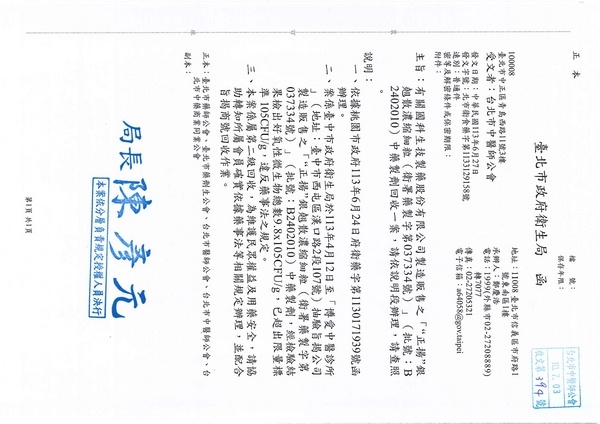 正本
檔　號：
保存年限：
臺北市政府衛生局　函
地址：11008 臺北市信義區市府路1
號東南區1樓
承辦人：鄭慶浩
電話：1999(外縣市02-27208889)
轉7077
傳真：02-27205321
電子信箱：a64058@gov.taipei
100008
臺北市中正區青島西路11號3樓
受文者：台北市中醫師公會
發文日期：中華民國113年6月27日
發文字號：北市衛食藥字第1133129158號
速別：普通件
密等及解密條件或保密期限：
附件：
主旨：有關國科生技製藥股份有限公司製造販售之「“正揚”銀
翹散濃縮細粒（衛署藥製字第037334號）」（批號：B
2402010）中藥製劑回收一案，請依說明段辦理，請查照
。
說明：
一、依據桃園市政府113年6月24日府衛藥字第1130171939號函
辦理。
二、案係臺中市政府衛生局於113年4月12日至「博愛中醫診所
」（地址：臺中市西屯區漢口路2段107號）抽驗旨揭公司
製造販售之「“正揚”銀翹散濃縮細粒（衛署藥製字第
037334號）」（批號：B2402010）中藥製劑，經檢驗結
果檢出好氧性微生物總數9.8x105CFU/g，已超出限量標
準105CFU/g，違反藥事法之規定。
三、本案係屬第二級回收，為維護民眾權益及用藥安全，請協
助轉知所屬會員確實依據藥事法等相關規定辦理，並配合
旨揭商號回收作業。
正本：臺北市藥師公會、臺北市藥劑生公會、台北市醫師公會、台北市中醫師公會、台
北市中藥商業同業公會
副本：
局長 陳彥元
本案依分層負責規定授權人員決行
第1頁 共1頁
台北市中醫師公會
113.7.03
收文第394號